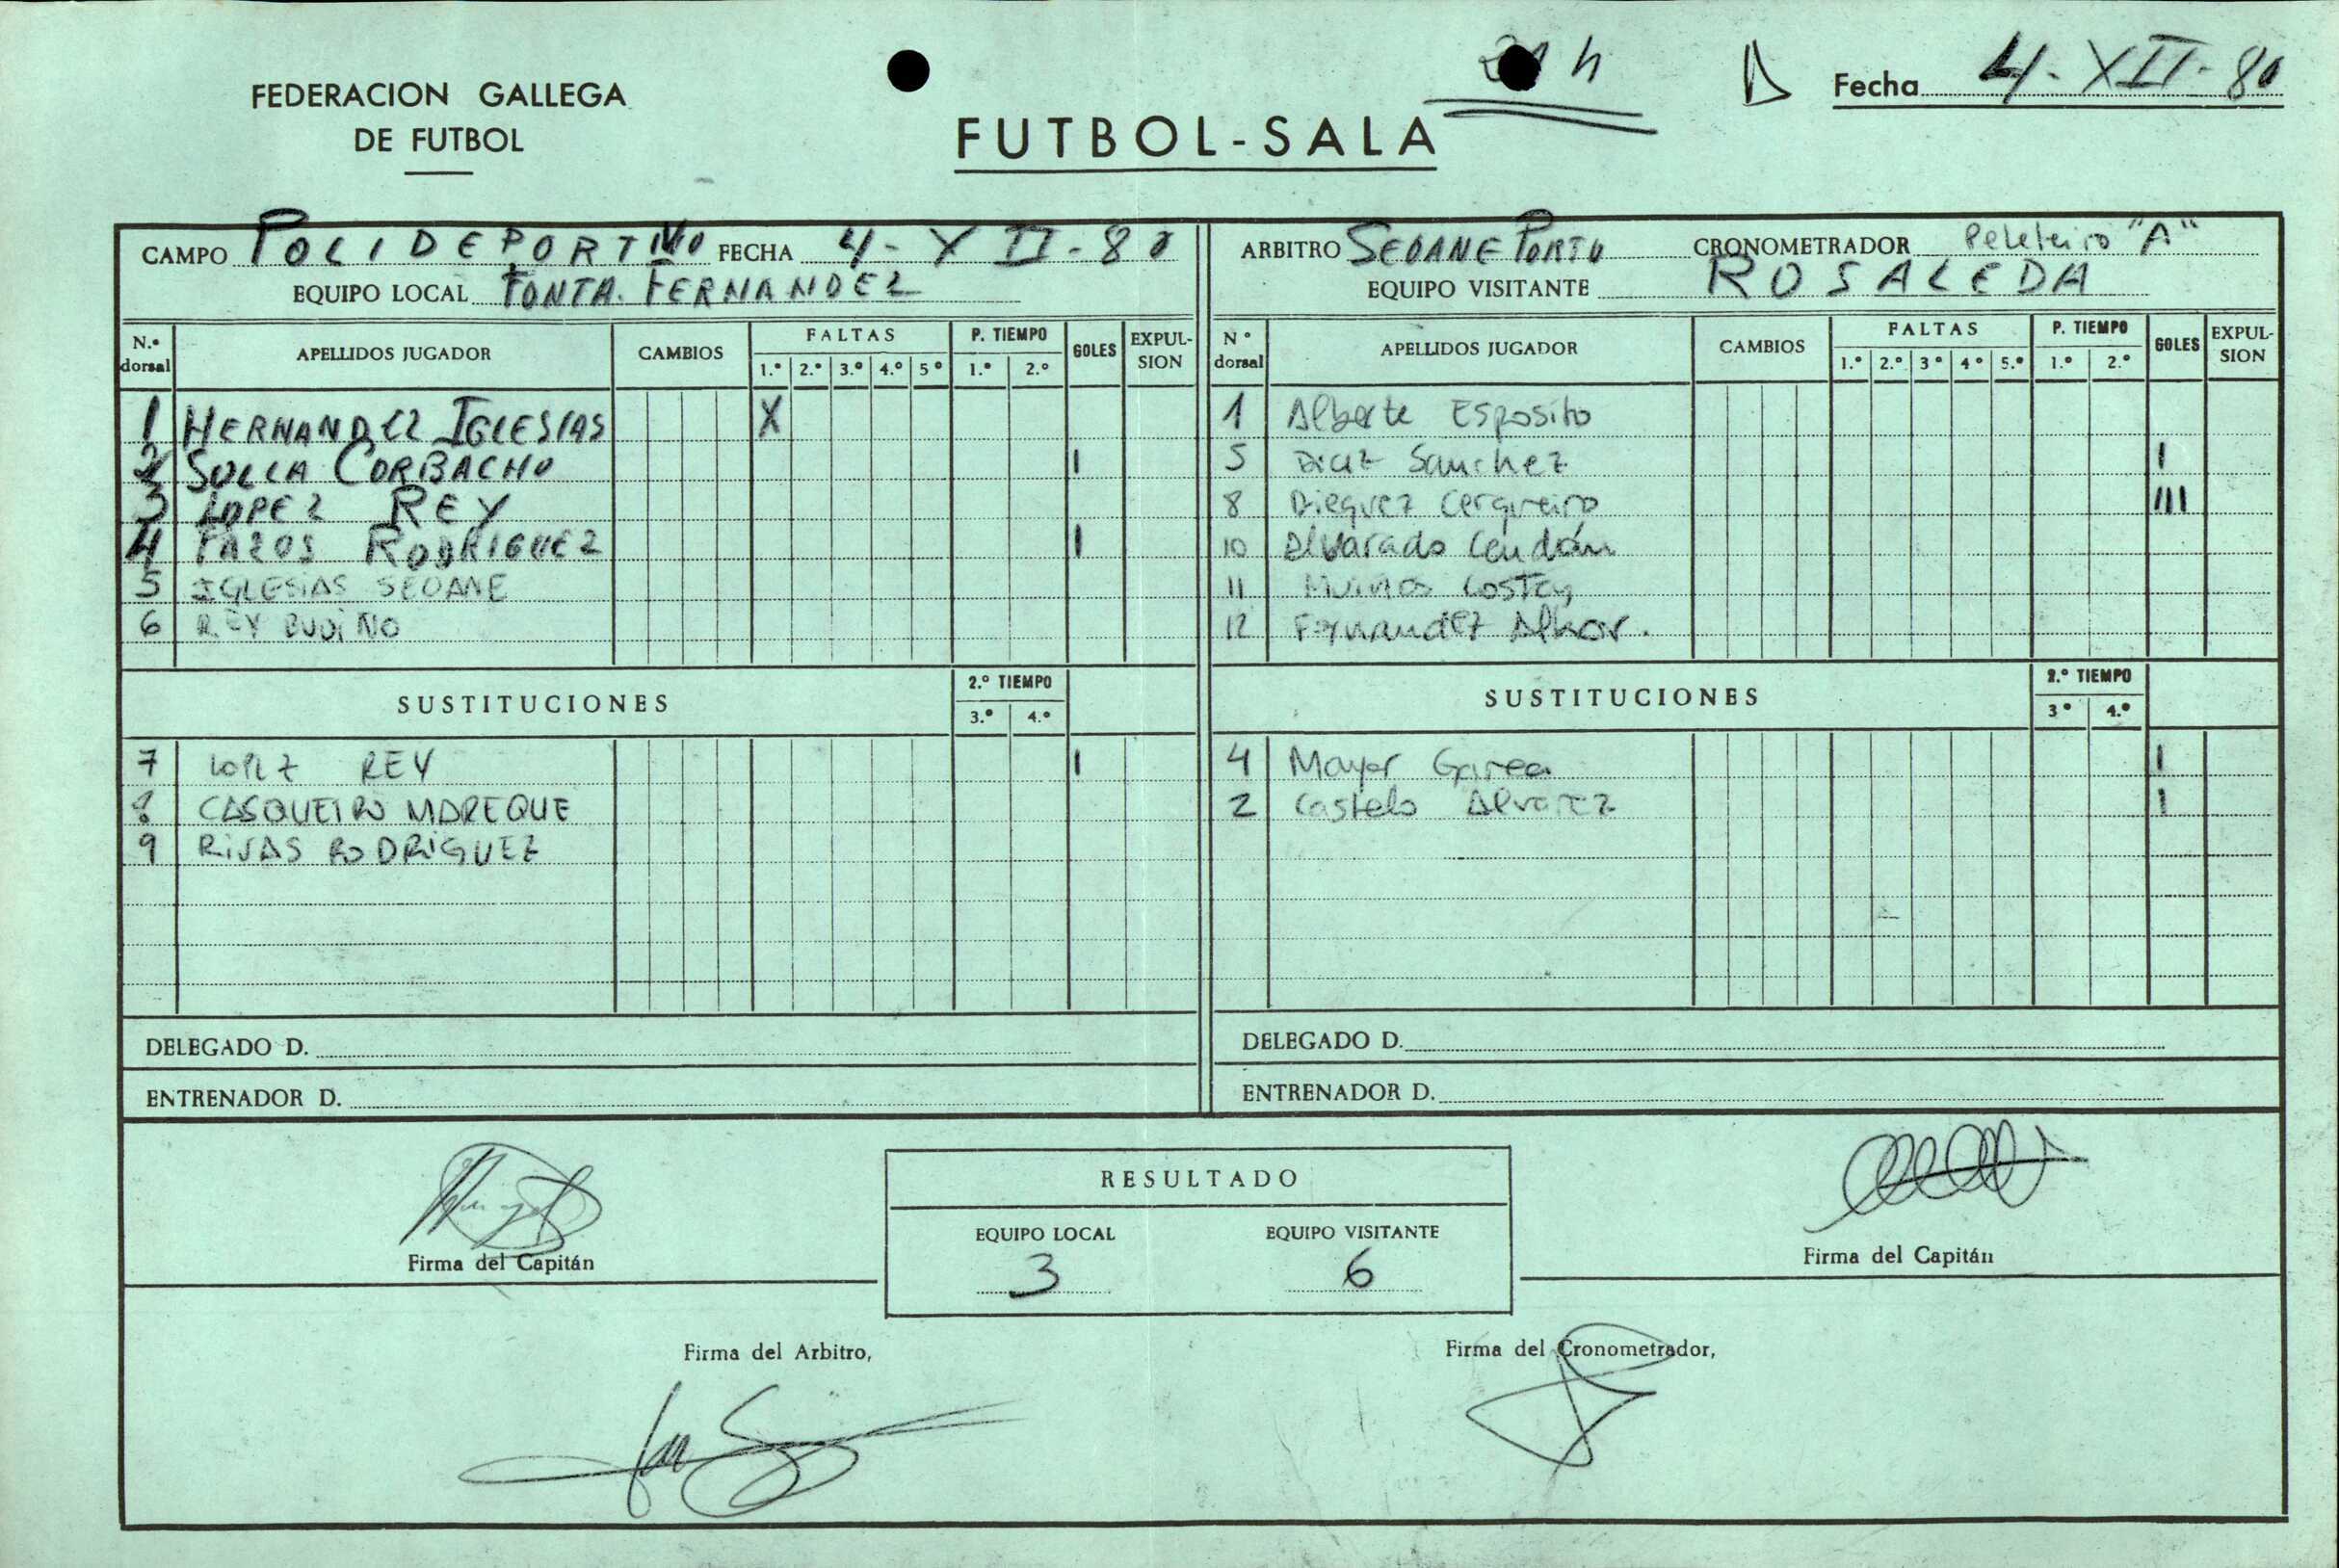 FEDERACION GALLEGA
DE FUTBOL
FUTBOL-SALA
h
Fecha 4-XII-80
CAMPO POLIDEPORTIVO FECHA 4-XII-80
EQUIPO LOCAL FONTA. FERNANDEZ
N.º dorsal APELLIDOS JUGADOR CAMBIOS FALTAS P. TIEMPO GOLES EXPULSION
1.º 2.º 3.º 4.º 5º 1.º 2.º
1 HERNANDEZ IGLESIAS X
2 SOLLA CORBACHO I
3 LOPEZ REY
4 PAZOS RODRIGUEZ I
5 IGLESIAS SEOANE
6 REY BUDIÑO
SUSTITUCIONES 2.º TIEMPO
3.º 4.º
7 LOPEZ REY I
8 CASQUEIRO MAREQUE
9 RIVAS RODRIGUEZ
DELEGADO D.
ENTRENADOR D.
ARBITRO SEOANE PORTO CRONOMETRADOR Peleteiro "A"
EQUIPO VISITANTE ROSALEDA
Nº dorsal APELLIDOS JUGADOR CAMBIOS FALTAS P. TIEMPO GOLES EXPULSION
1.º 2.º 3º 4º 5.º 1.º 2.º
1 Alberte Esposito
5 Diaz Sanchez I
8 Dieguez Cerqueiro III
10 Alvarado Cendón
11 Costoy
12 Fernandez
SUSTITUCIONES 2.º TIEMPO
3º 4.º
4 Mayor Garea I
2 Castelo Alvarez I
DELEGADO D.
ENTRENADOR D.
Firma del Capitán
RESULTADO
EQUIPO LOCAL EQUIPO VISITANTE
3 6
Firma del Capitán
Firma del Arbitro,
Firma del Cronometrador,